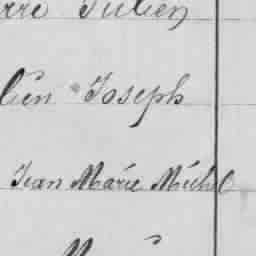 rre Julien
lien Joseph
Jean Marie Michel